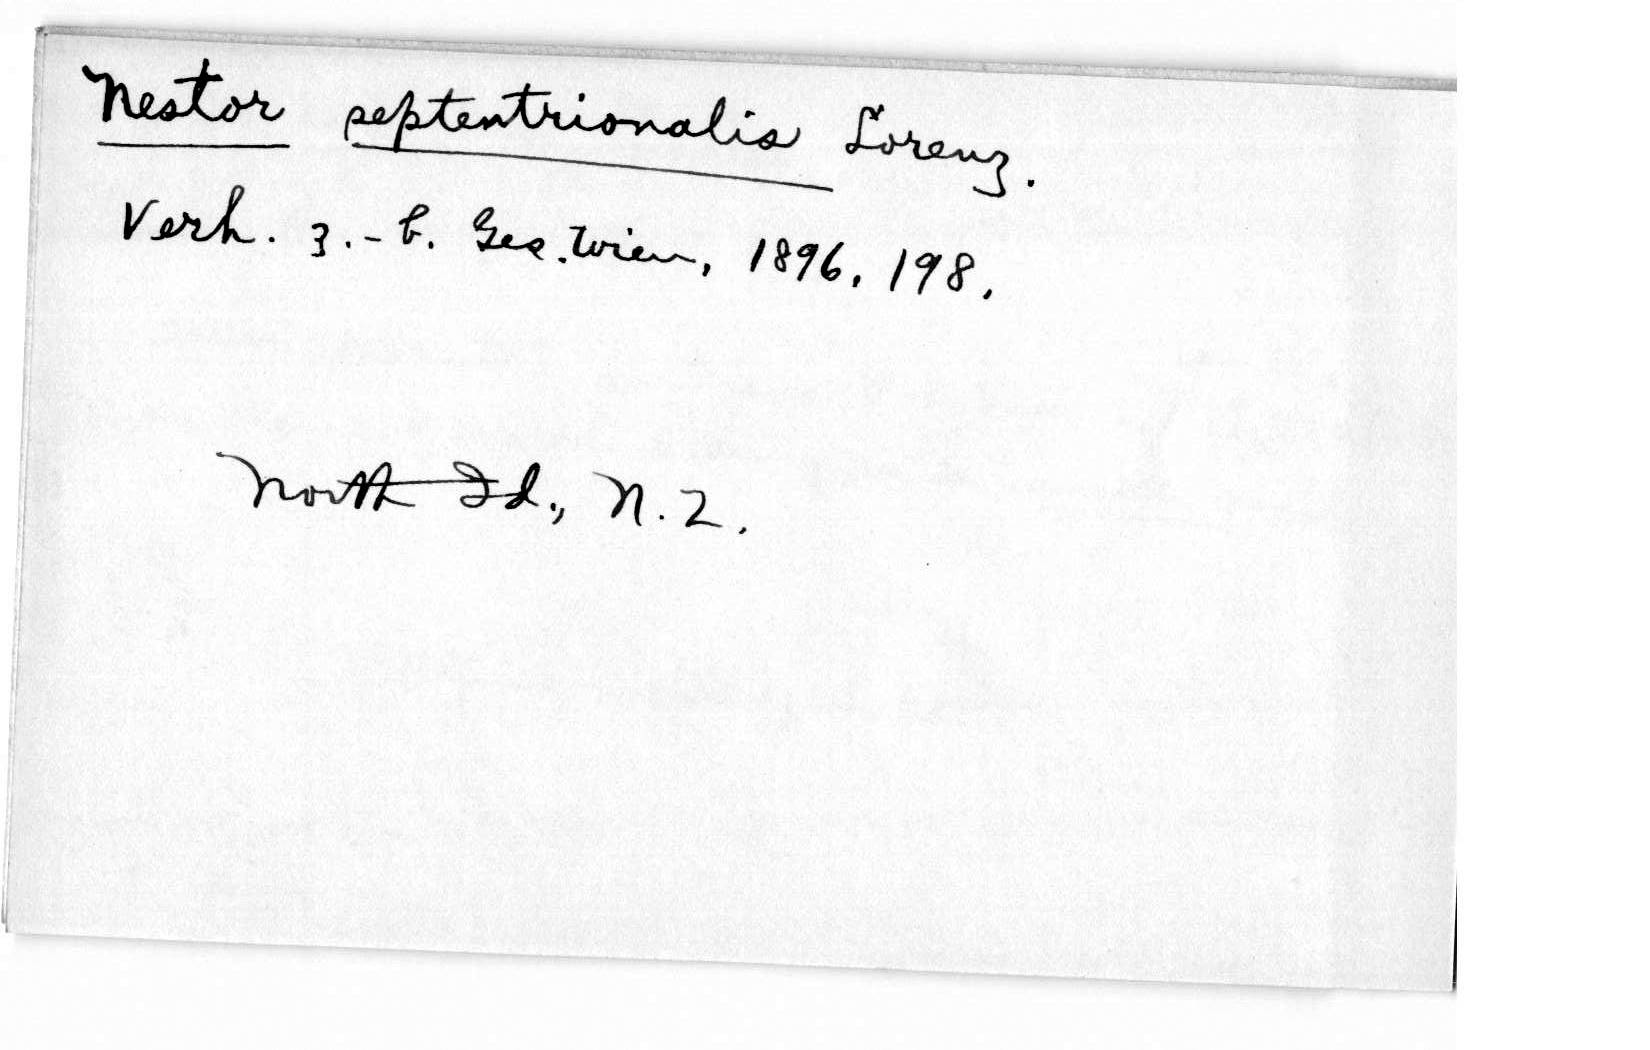 Nestor septentrionalis Lorenz.
Verh. z.-b. Ges. Wien, 1896, 198.
North Id., N.Z.